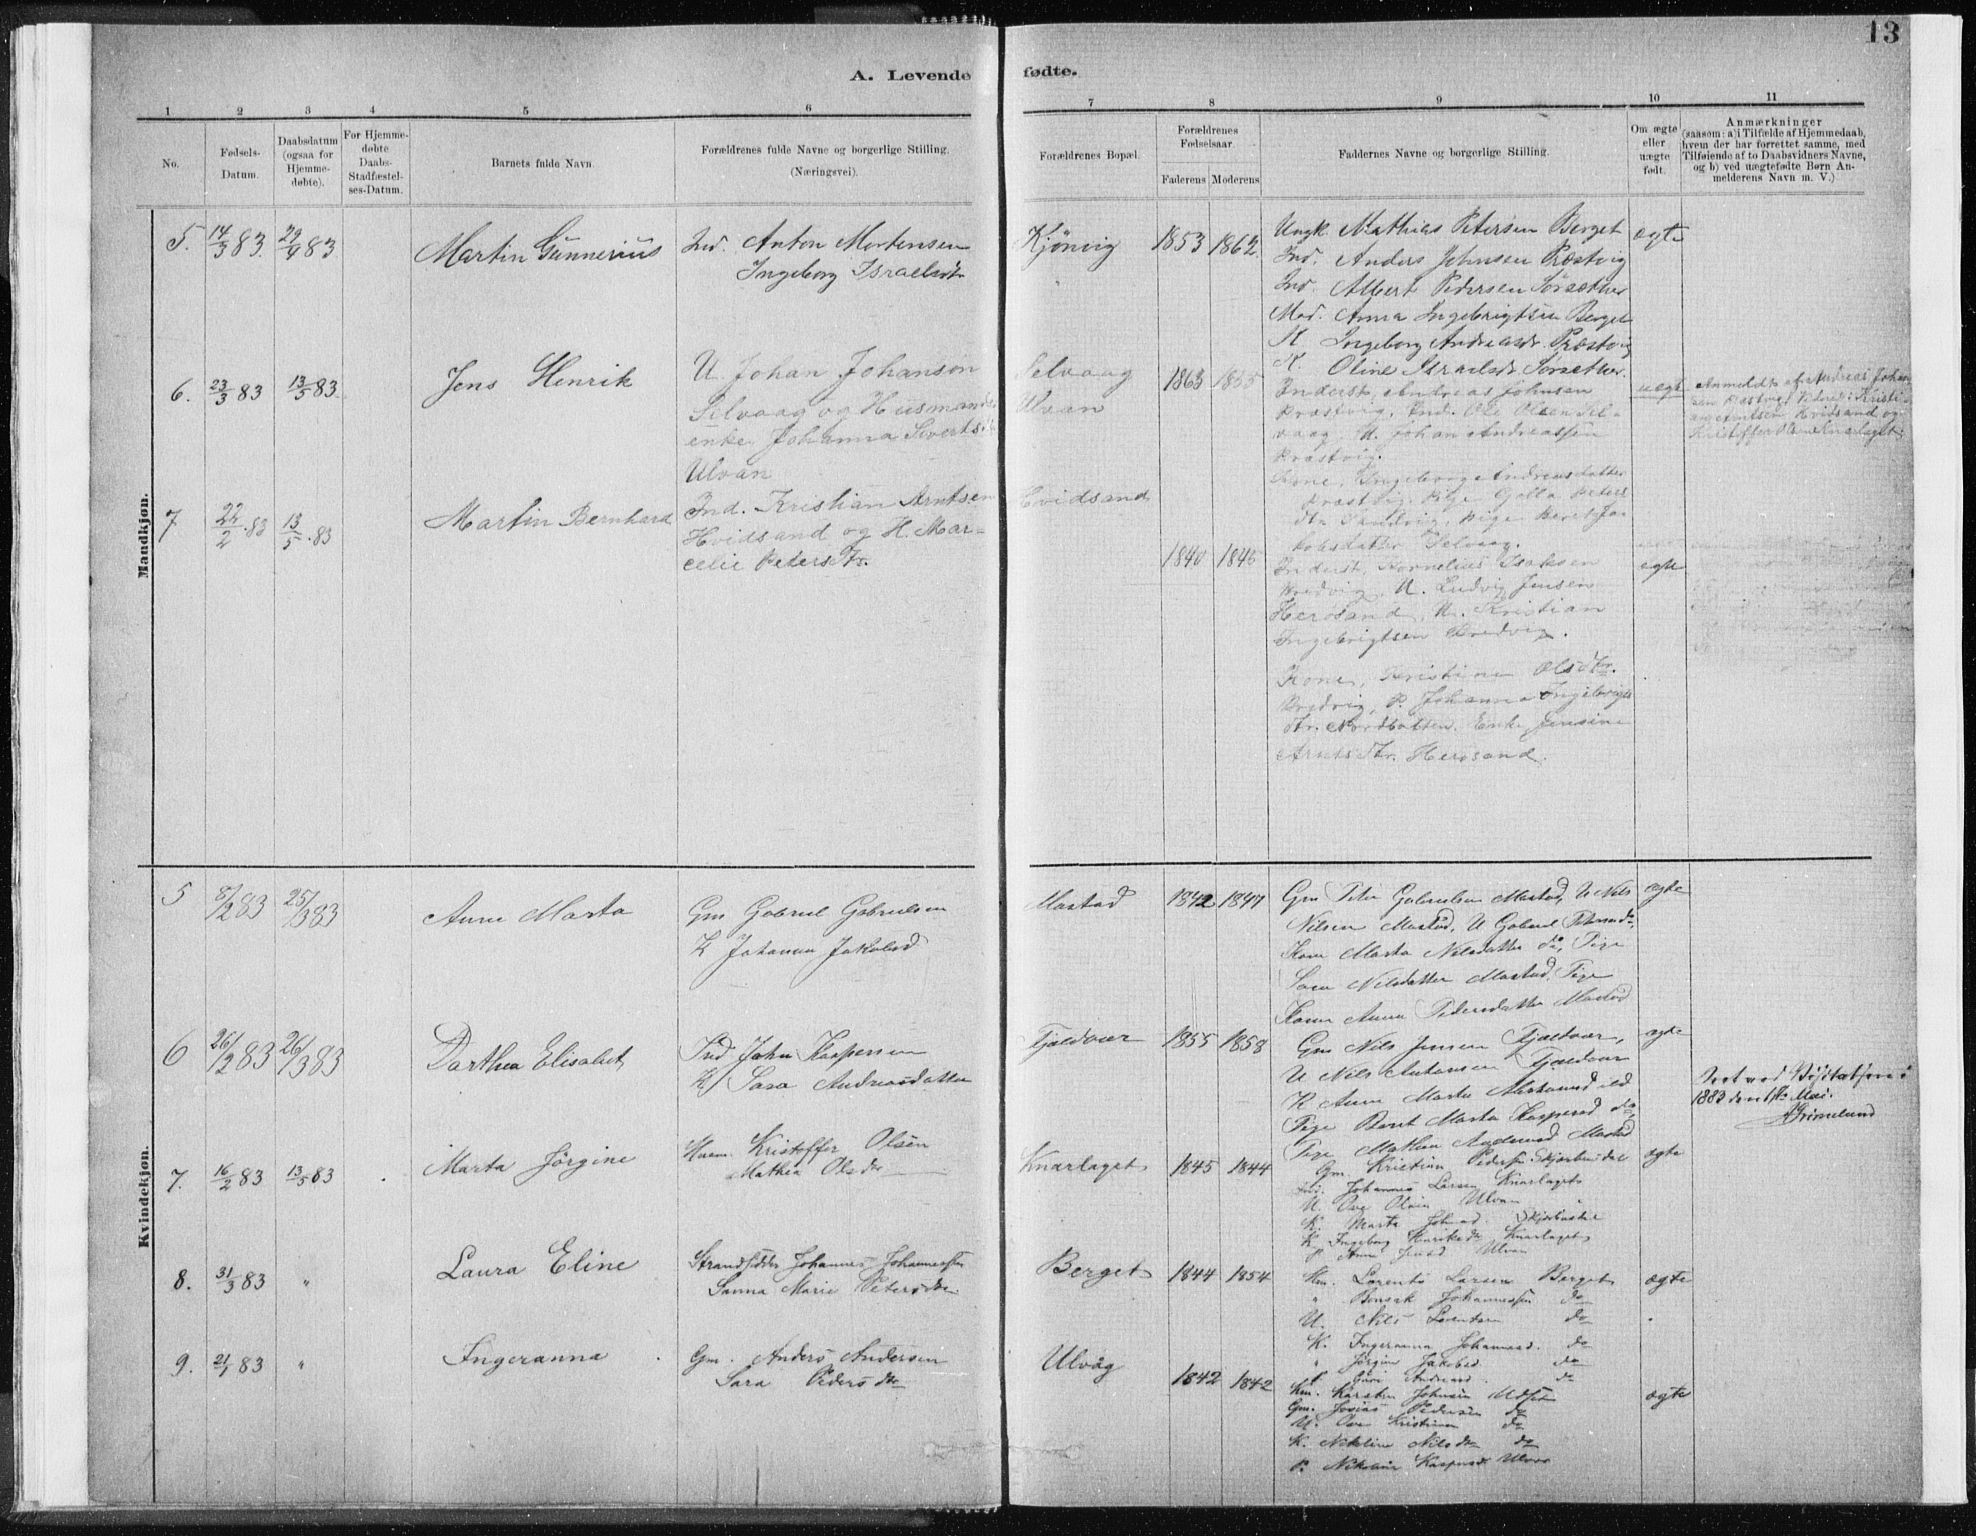 13
A. Levende fødte.
1 2 3 4 5 6 7 8 9 10 11
No.
Fødsels-
Datum.
Daabsdatum
(ogsaa for
Hjemme-
døbte).
For Hjemme-
døbte
Daabs-
Stadfæstel-
ses-Datum.
Barnets fulde Navn.
Forældrenes fulde Navne og borgerlige Stilling.
(Næringsvei).
Forældrenes Bopæl.
Forældrenes
Fødselsaar.
Faderens Moderens
Faddernes Navne og borgerlige Stilling.
Om ægte
eller
uægte
født.
Anmærkninger
(saasom: a) i Tilfælde af Hjemmedaab,
hvem der har forrettet samme, med
Tilføiende af to Daabsvidners Navne,
og b) ved uægtefødte Børn An-
melderens Navn m. V.)
Mandkjøn.
5. 14/3 83. 29/4 83
Martin Gunnerius
Ind. Anton Mortensen
Ingeborg Israelsdtr
Kjönvig
1853 1862
Ungk. Mathias Petersen Berget
Ind. Anders Johnsen Præstvig
Ind. Albert Pedersen Sörsæther
Mad. Anna Ingebrigtsen Berget
K. Ingeborg Andreasdr. Præstvig
K. Oline Israelsdr Sörsether.
ægte
6. 23/3 83 13/5 83.
Jens Henrik
U. Johan Johanson
Selvaag og Husmands
enke Johanna Sivertsd
Ulvan
Selvaag
Ulvan
1863 1855
Inderst, Andreas Johnsen
Præstvig, Ind. Ole Olsen Sel-
vaag. U. Johan Andreassen
Præstvig.
Kone, Ingeborg Andreasdatter
Præstvig. Pige Golla Peters
dtr Sandvig, Pige Beret Ja-
kobsdatter Selvaag.
uægte
Anmeldt af Andreas Johan
sen Præstvig. Vidner: Kristi-
an Arntsen Hvidsand og
Kristoffer Olsen Knarlaget.
7 22/2 . 83 13/5 . 83
Martin Bernhard
Ind. Kristian Arntsen
Hvidsand og H. Mar-
celie Petersdtr.
Hvidsand
1840 1846
Inderst, Kornelius Isaksen
Bredvig, U. Ludvig Jensen
Herosand, U. Kristian
Ingebrigtsen Bredvig.
Kone, Kristine Olsdtr.
Bredvig, P. Johanna Ingebrigts
dtr. Nordbotten. Enke Jensine
Arntsdtr. Herosand.
ægte
Kvindekjøn.
5 8/2 83 25/3 83
Anne Marta
Gm Gabriel Gabrielsen
K Johanna Jakobsd
Mastad
1842 1847
Gm Peter Gabrielsen Mastad, U Nils
Nilsen Mastad, U Gabriel Petersen do,
Kone Marta Nilsdatter do, Pige
Sara Nilsdatter Mastad, Pige
Kone Anna Pedersdatter Mastad
ægte
6 26/2 83 26/3 83
Dorthea Elisabet
Ind John Kaspersen
K Sara Andreasdatter
Fjeldvær
1855 1858
Gm Nils Jensen Fjeldvær,
U Nils Antonsen Fjeldvær
K Anne Marta
Pige Beret Marta Kaspersd do,
Pige Mathea Andersd Mastad
ægte
Seet ved Visitatsen i
1883 den 17de Mai.
A Grimelund
7. 16/2 83 13/5 83
Marta Jörgine
Huem. Kristoffer Olsen
Mathea Olsdr
Knarlaget
1845 1844
Gm. Kristian Pedersen Skjærbusdal
Ind. Johannes Larsen Knarlaget
U. Ove Olsen Ulvan
K. Marta Johnsd.
K. Ingeborg Henriksdr Knarlaget
P. Anne Jensd Ulvan
ægte
8. 31/3 83 "
Laura Eline
Strandsidder Johannes Johannessen
Sanna Marie Petersdr
Berget
1844 1854
Hm. Lorents Larsen Berget
" Bonsak Johannessen do
U. Nils Lorentsen do
K. Ingeranna Johannesd. do
" Jörgine Jakobsd. do
P. Guri Andreasd. do
ægte
9. 21/1 83 "
Ingeranna
Gm. Anders Andersen
Sara Pedersdr
Ulvåg
1842 1842
Hm. Karsten Johnsen
Gm. Josias Pedersen do
U. Ove Kristiansen do
K. Nikoline Nilsdr do
P. Nikoline Kaspersdr Ulvan
ægte